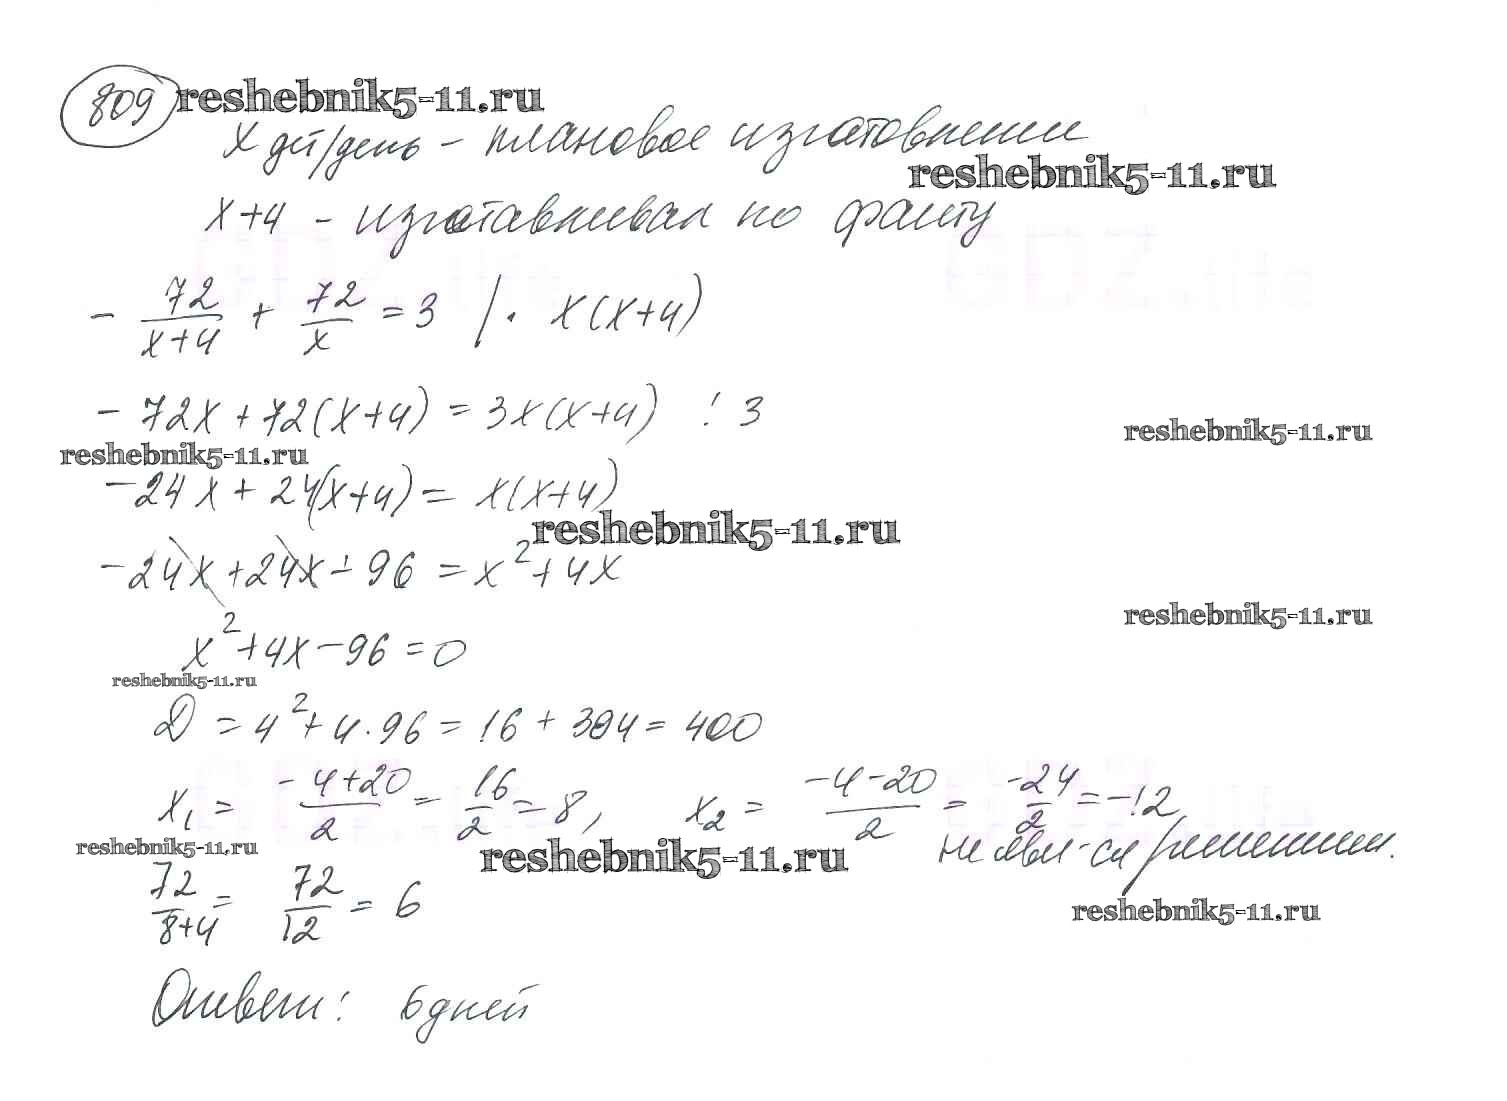 809 reshebnik5-11.ru
x дет/день - плановое изготовлении
reshebnik5-11.ru
x+4 - изготавливал по факту
GDZ.life GDZ.life
- 72/(x+4) + 72/x = 3 | · x(x+4)
- 72x + 72(x+4) = 3x(x+4) : 3
reshebnik5-11.ru
reshebnik5-11.ru
-24x + 24(x+4) = x(x+4)
reshebnik5-11.ru
-24x + 24x + 96 = x² + 4x
reshebnik5-11.ru
x² + 4x - 96 = 0
reshebnik5-11.ru
D = 4² + 4·96 = 16 + 384 = 400
GDZ.life GDZ.life
x₁ = (-4+20)/2 = 16/2 = 8, x₂ = (-4-20)/2 = -24/2 = -12
не явл-ся решением.
reshebnik5-11.ru
reshebnik5-11.ru
72/(8+4) = 72/12 = 6
reshebnik5-11.ru
Ответ: 6 дней